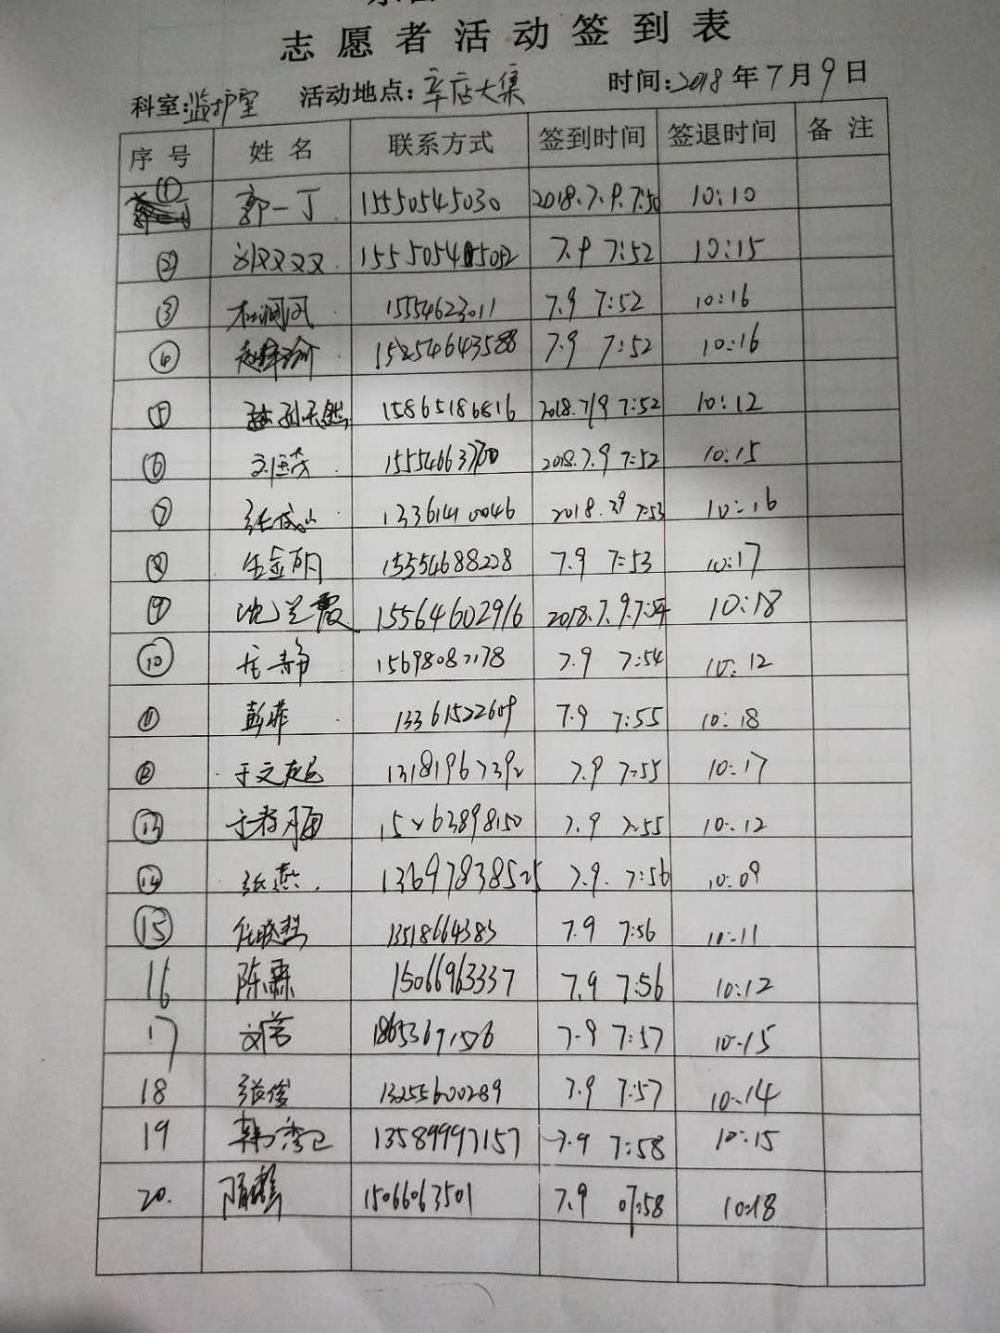 志愿者活动签到表
科室:监护室 活动地点:辛店大集 时间:2018年7月9日
序号 姓名 联系方式 签到时间 签退时间 备注
① 郭一丁 15550545030 2018.7.9.7:50 10:10
② 刘双双 7.9 7:52 10:15
③ 15554623011 7.9 7:52 10:16
④ 15254643588 7.9 7:52 10:16
⑤ 孙天然 15865186816 2018.7/9 7:52 10:12
⑥ 2018.7.9 7:52 10:15
⑦ 13361410046 7:53 10:16
⑧ 15554688228 7.9 7:53 10:17
⑨ 沈兰霞 15564602916 2018.7.9.7:54 10:18
⑩ 7.9 7:54 10:12
⑪ 彭菲 13361522609 7.9 7:55 10:18
⑫ 7.9 7:55 10:17
⑬ 15263898150 7.9 7:55 10:12
⑭ 张燕 13697838525 7.9. 7:56 10:09
⑮ 13518664383 7.9 7:56 10:11
16 陈霖 15066963337 7.9 7:56 10:12
17 7.9 7:57 10:15
18 张俊 13255600289 7.9 7:57 10:14
19 韩秀卫 13589997157 7.9 7:58 10:15
20. 15066063501 7.9 07:58 10:18